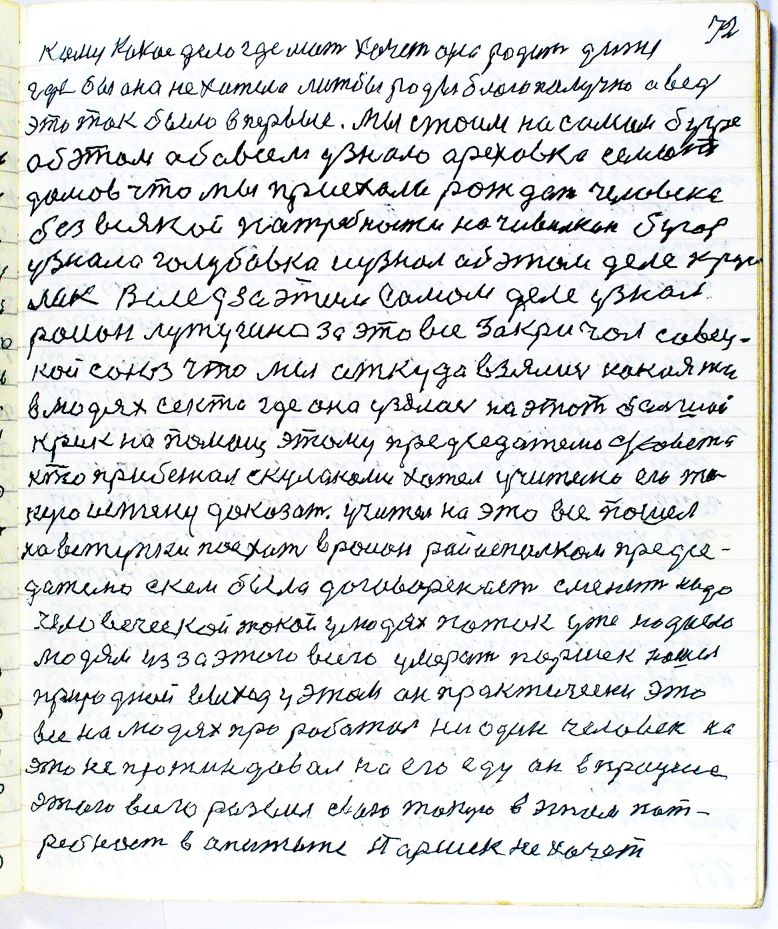 72
кому какое дело где мат хочет она родит дитя
где бы она не хатела литбы роды благополучно а вед
это так было впервые. мы стоим на самом бугре
об этом обовсем узнало ореховка семсот
домов что мы приехали рождат человека
без всякой патребности на чивилкин бугор
узнала голубовка и узнал об этом деле круг
лик Вслед за этим самом деле узнал
роион лутугино за это все закричал совец-
кой союз что мы откуда взялис какаяти
в людях секта где она узялас на этот большой
крик на помощ этому председателю совета
хто прибежал скулаками хотел учителю его та-
кую истену доказат. учител на это все пошел
на вступки поехат вроион райисполком предсе-
дателю скем была договореност сменит надо
человеческой такой улюдях паток уже надоело
людям из за этого всего умерат паршек нашел
природной выход у этом он практически это
все на людях проработал ни один человек на
это не притиндовал на его еду он впрацисе
этого всего развил свою такую в этом пат-
ребност в апитыте Паршек не хочет